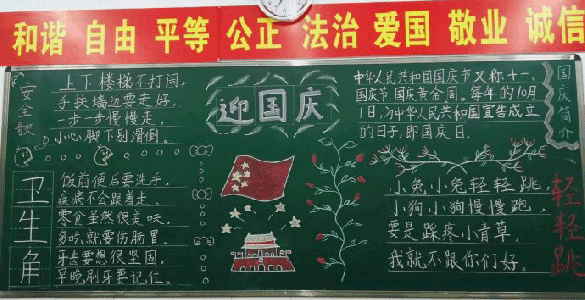 和谐 自由 平等 公正 法治 爱国 敬业 诚信
安全歌
上下楼梯不打闹,
手扶墙边要走好,
一步一步慢慢走,
小心脚下别滑倒。
卫生角
饭前便后要洗手,
疾病不会跟着走。
零食虽然很美味,
多吃就要伤肠胃。
牙齿要想很坚固,
早晚刷牙要记仁。
迎国庆
国庆简介
中华人民共和国国庆节又称十一、
国庆节、国庆黄金周。每年的10月
1日,为中华人民共和国宣告成立
的日子,即国庆日。
轻轻跳
小兔小兔轻轻跳,
小狗小狗慢慢跑,
要是踩疼小青草,
我就不跟你们好。